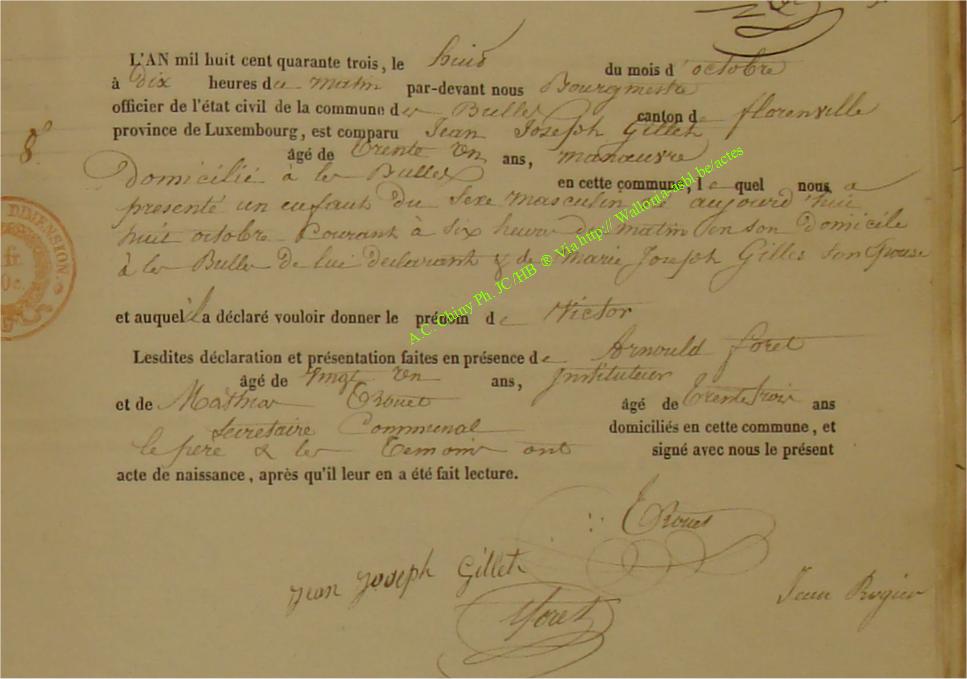 L'AN mil huit cent quarante trois, le huit du mois d'octobre
à dix heures du matin par-devant nous Bourgmestre
officier de l'état civil de la commune des Bulles canton de florenville
province de Luxembourg, est comparu Jean Joseph Gillet
8.
âgé de trente un ans, manœuvre
Domicilié à les Bulles en cette commune, le quel nous a
presenté un enfant du sexe masculin né aujourd'hui
huit octobre courant à six heures du matin en son domicile
à les Bulles de lui déclarant & de marie Joseph Gilles son épouse
et auquel il a déclaré vouloir donner le prénom de Victor
Lesdites déclaration et présentation faites en présence de Arnould foret
âgé de vingt un ans, Instituteur
et de Mathias Trouet âgé de trente trois ans
secretaire Communal domiciliés en cette commune, et
le pere & les temoins ont signé avec nous le présent
acte de naissance, après qu'il leur en a été fait lecture.
Trouet
Jean Joseph Gillet
foret
Jean Rogier
DIMENSION.
fr.
A.C. Chiny Ph. JC/HB ® Via http:// Wallonia-asbl.be/actes